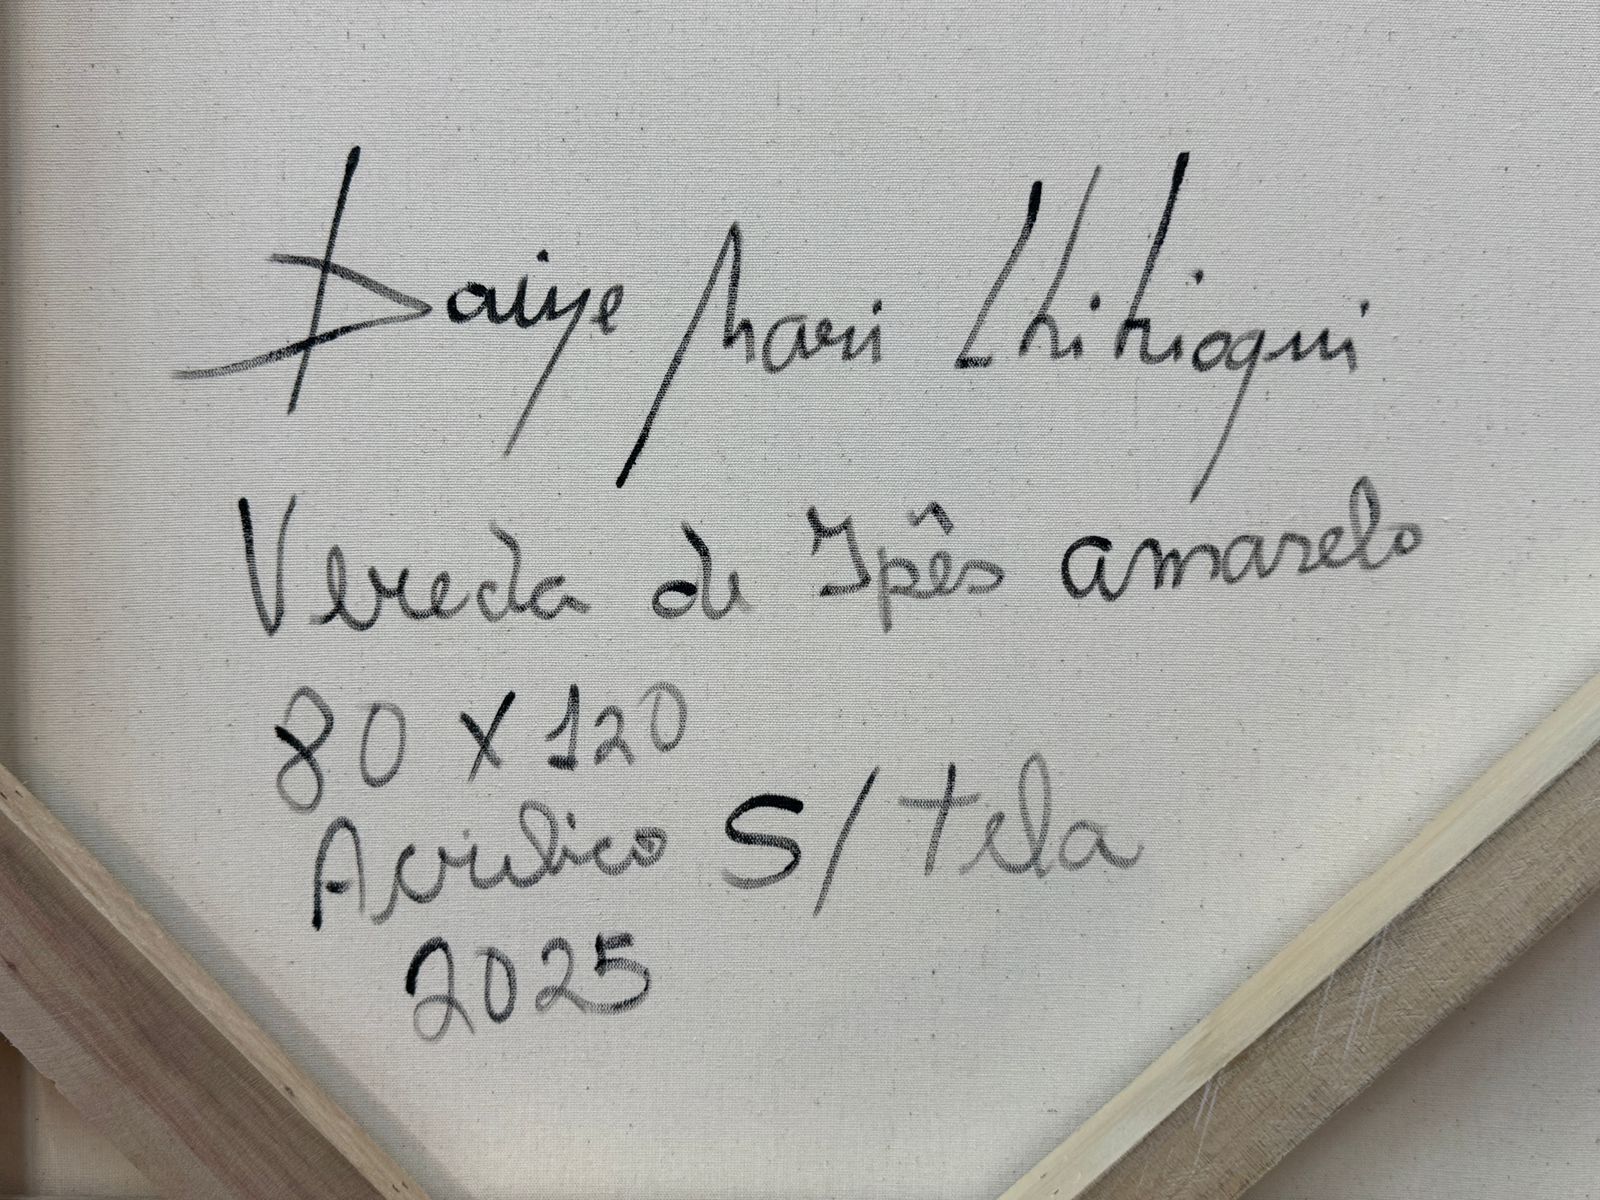 Daiye Mari
Vereda de Ipês amarelo
80 x 120
Acrílico S/ tela
2025